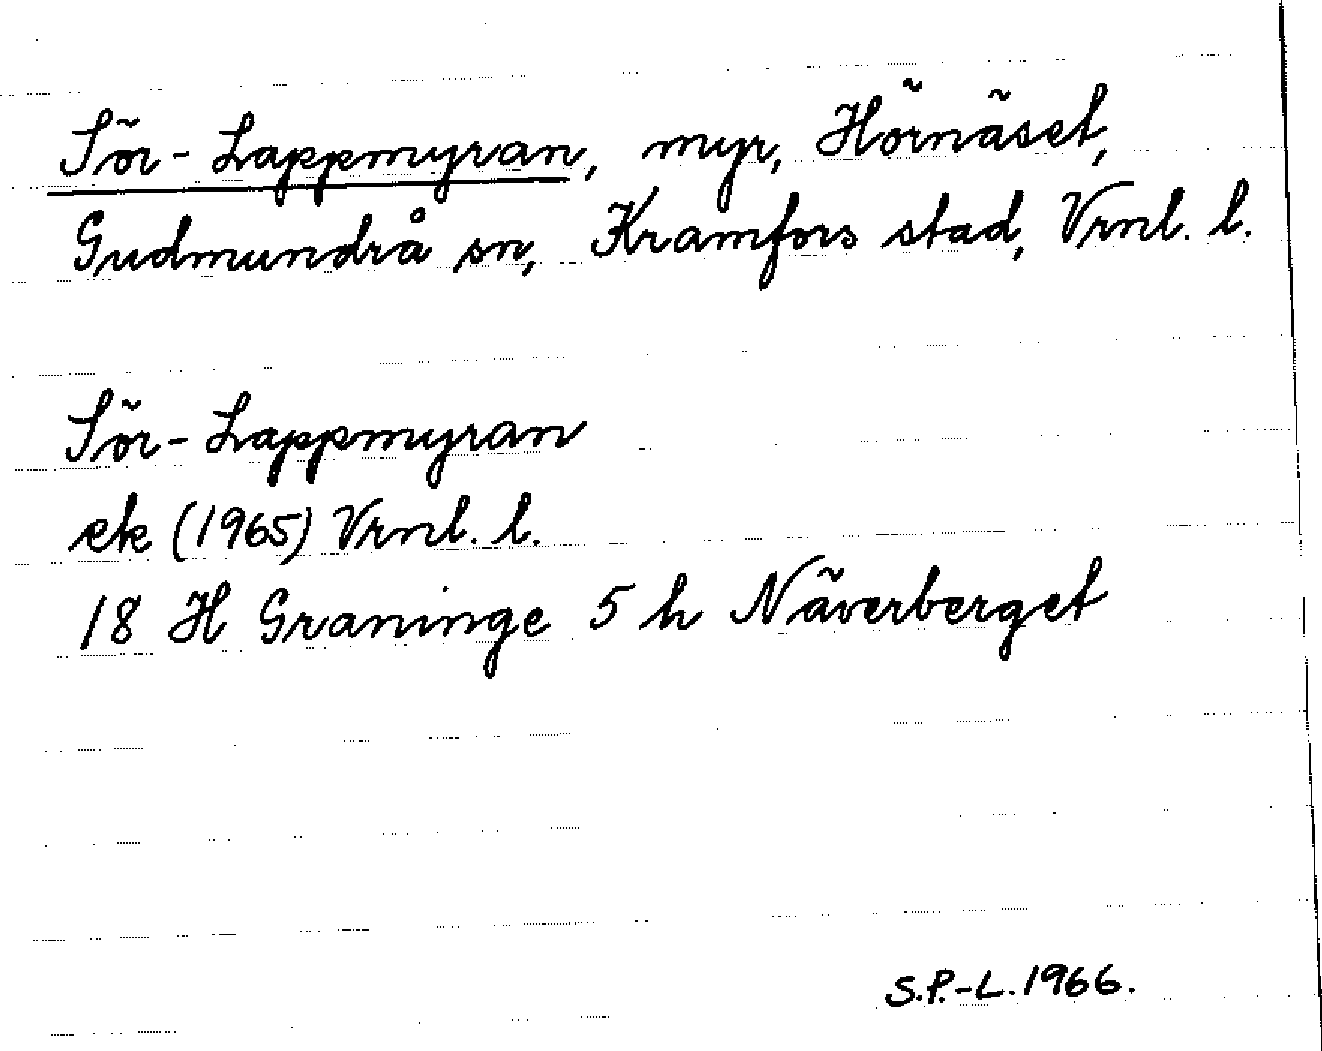 Sör-Lappmyran, myr, Hörnäset,
Gudmundrå sn, Kramfors stad, Vrnl. l.
Sör-Lappmyran
ek (1965) Vrnl. l.
18 H Graninge 5 h Näverberget
S.P.-L. 1966.